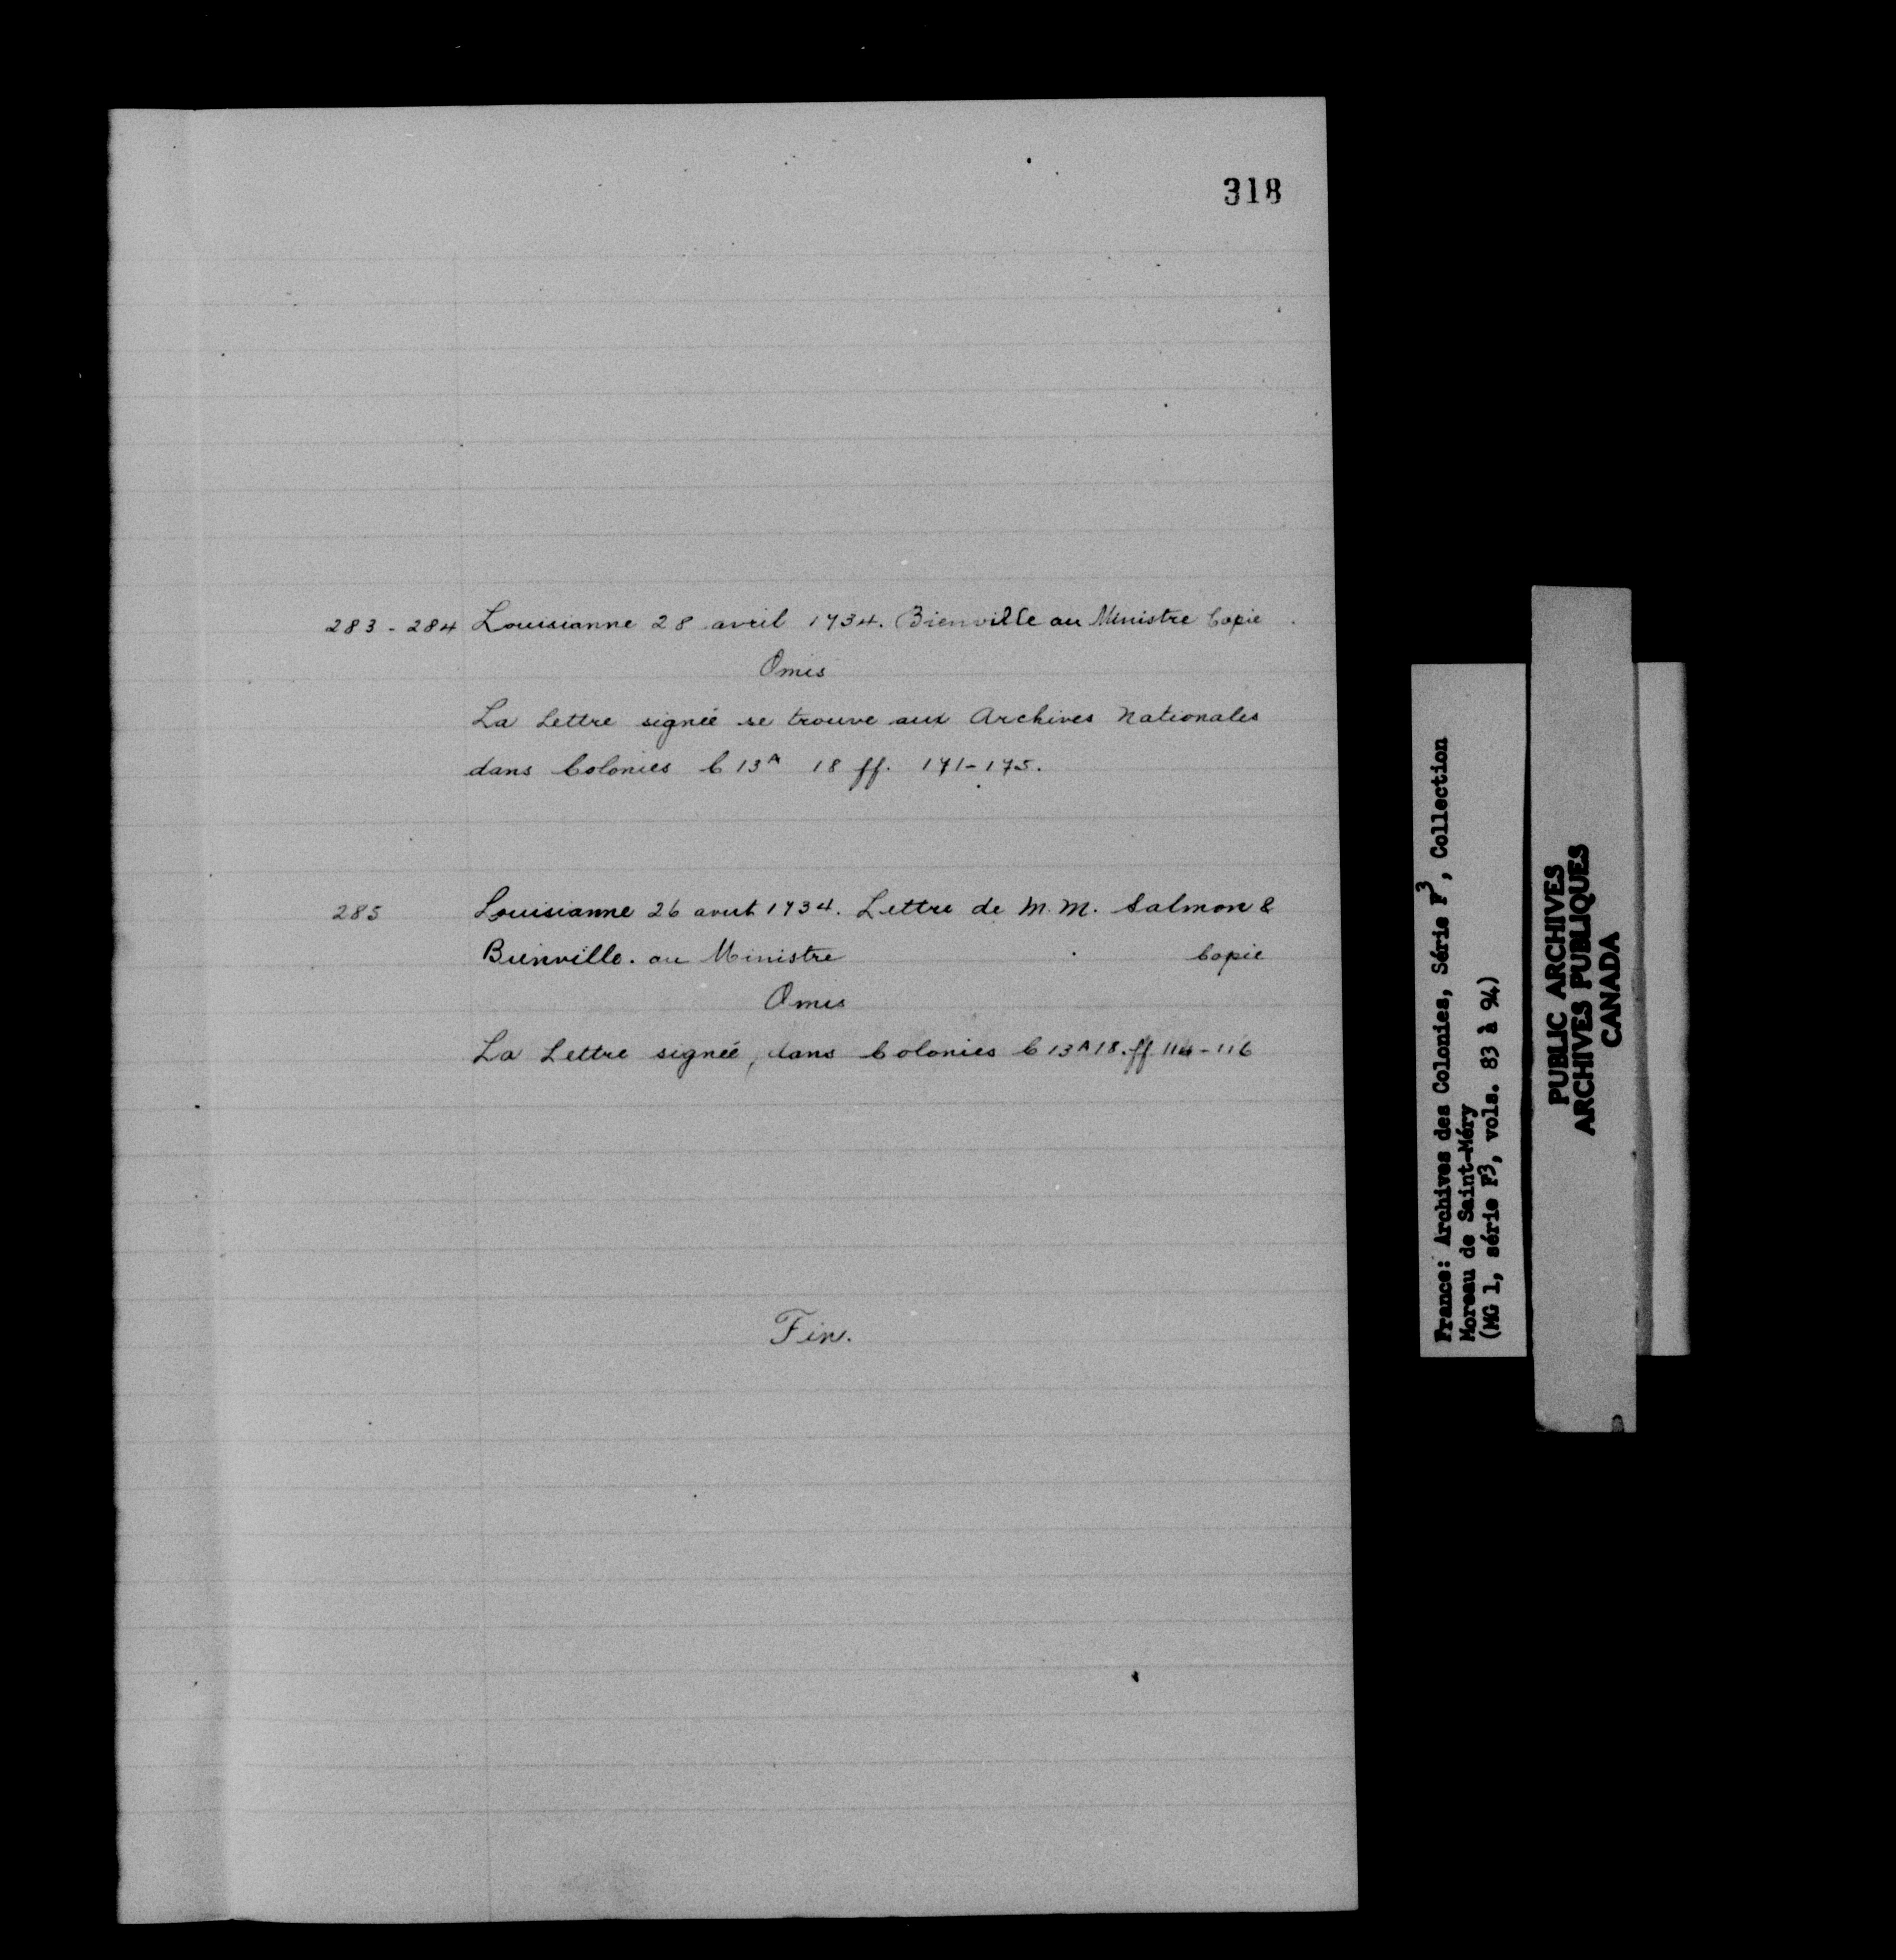 318
283-284 Louisianne 28 avril 1734. Bienville au Ministre Copie.
Omis
La Lettre signée se trouve aux Archives Nationales
dans Colonies C 13ᴬ 18 ff. 171-175.
285 Louisianne 26 aout 1734. Lettre de M.M. Salmon &
Bienville. au Ministre Copie
Omis
La Lettre signée, dans Colonies C 13ᴬ 18. ff 114-116
Fin.
France: Archives des Colonies, Série F³, Collection
Moreau de Saint-Méry
(MG 1, série F³, vols. 83 à 94)
PUBLIC ARCHIVES
ARCHIVES PUBLIQUES
CANADA